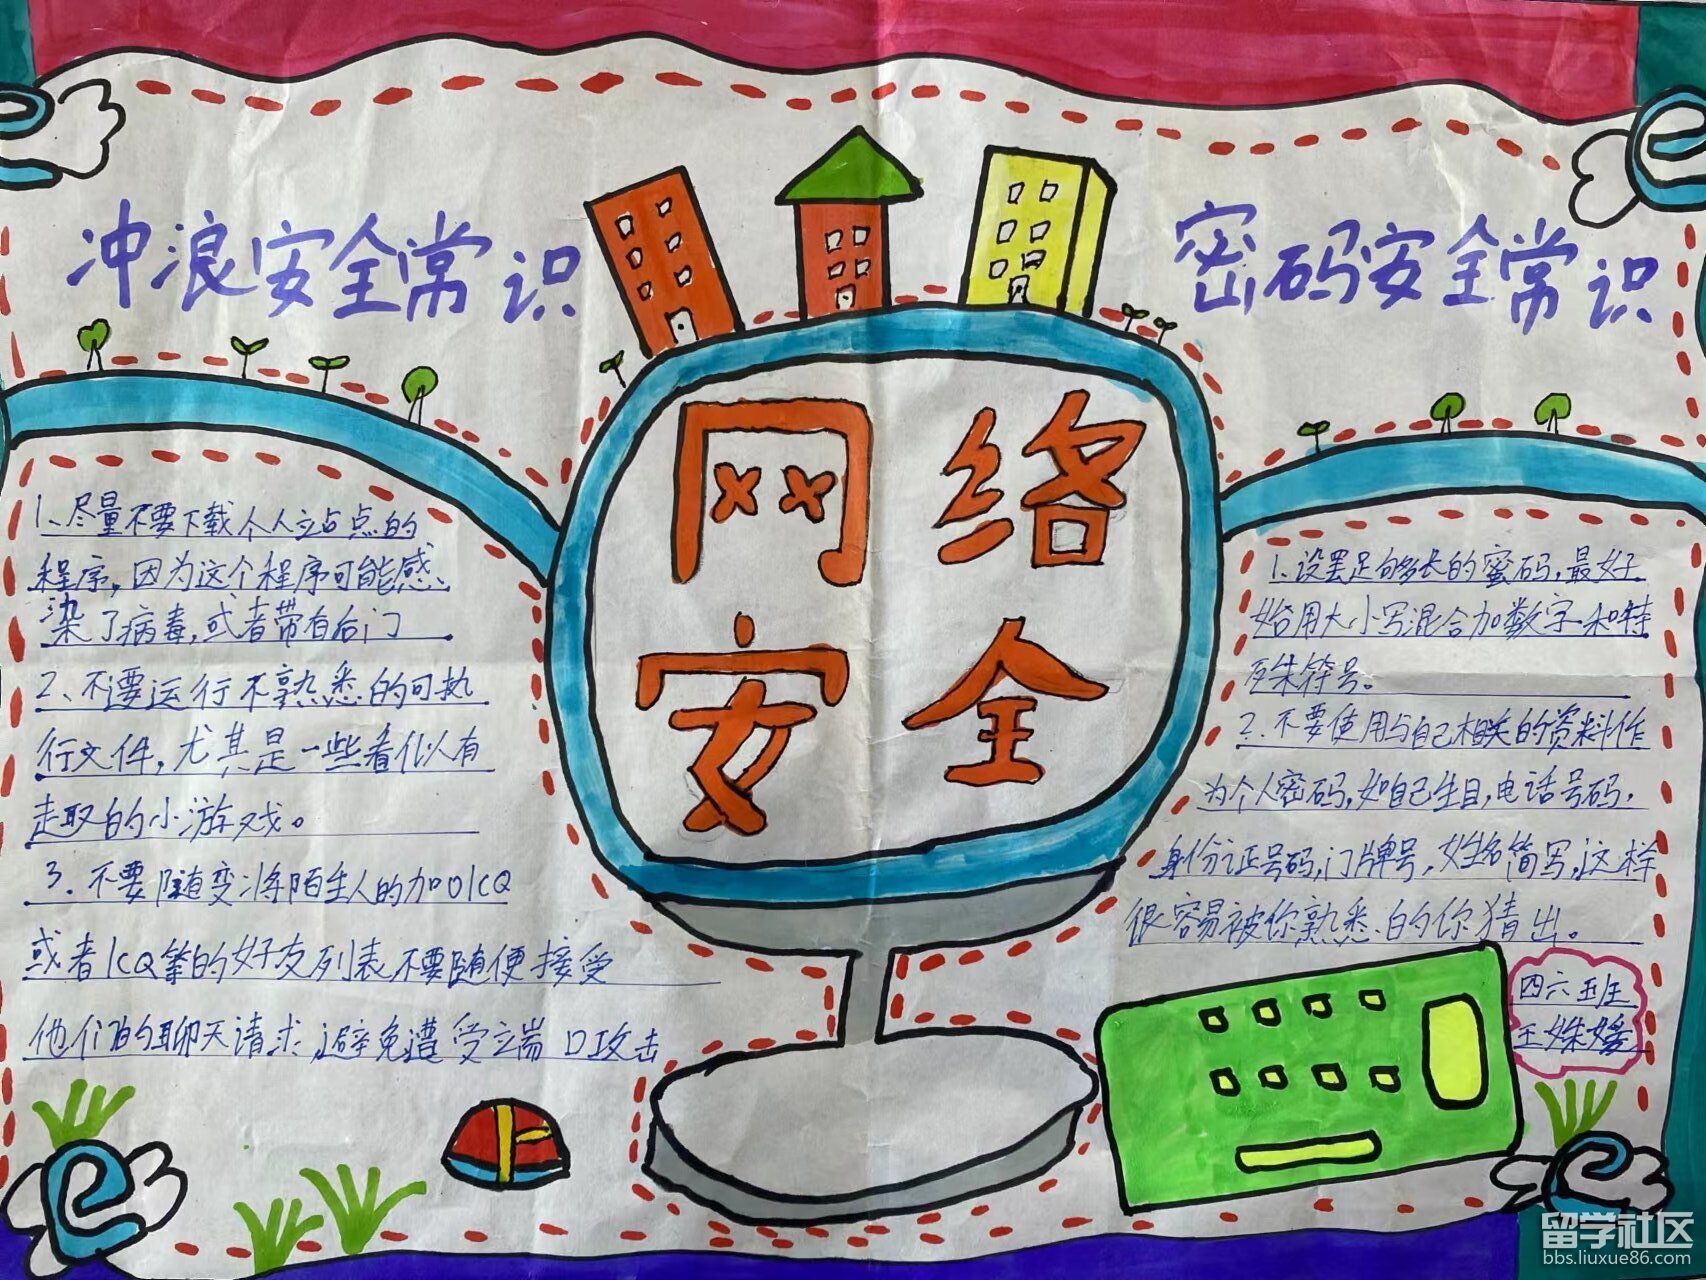 冲浪安全常识
密码安全常识
网络
安全
1、尽量不要下载个人站点的
程序，因为这个程序可能感
染了病毒，或者带有后门
2、不要运行不熟悉的可执
行文件，尤其是一些看似有
趣的小游戏。
3、不要随变将陌生人的加OICQ
或者ICQ等的好友列表不要随便接受
他们的聊天请求，避免遭受端口攻击
1、设置足够长的密码，最好
始用大小写混合加数字和特
殊符号。
2、不要使用与自己相关的资料作
为个人密码，如自己生日，电话号码，
身份证号码，门牌号，姓名简写，这样
很容易被你熟悉的你猜出。
四六班
王姝媛
e
e
e
e
留学社区
bbs.liuxue86.com